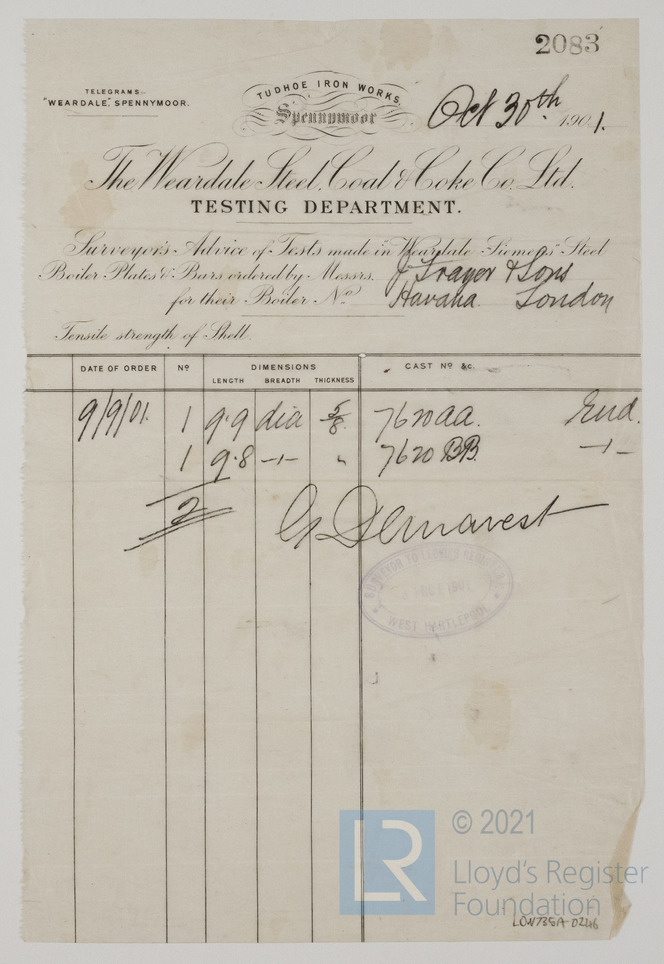 2083
TELEGRAMS:-
"WEARDALE," SPENNYMOOR.
TUDHOE IRON WORKS,
Spennymoor
Oct 30th 1901.
The Weardale Steel, Coal & Coke Co. Ltd.
TESTING DEPARTMENT.
Surveyor's Advice of Tests made in Weardale Siemens Steel
Boiler Plates & Bars ordered by Messrs. J. Fraser & Sons
for their Boiler No Havana London
Tensile strength of Shell.
DATE OF ORDER No DIMENSIONS CAST No &c.
LENGTH BREADTH THICKNESS
9/9/01 1 9.9 dia 5/8 7620 AA. End.
1 9.8 -1- " 7620 BB. -1-
2 G Demarest
SURVEYOR TO LLOYD'S REGISTER
1901
WEST HARTLEPOOL
LR
© 2021
Lloyd's Register
Foundation
LON735A-0246